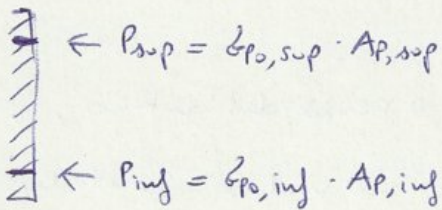 ← P_sup = σ_p0,sup · A_p,sup
← P_inf = σ_p0,inf · A_p,inf